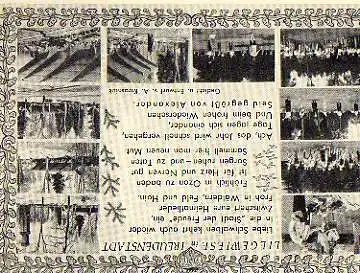 LILGERFEST in FREUDENSTADT
Liebe Schwalben kehrt auch wieder
in die „Stadt der Freude" ein,
Zwitschert eure Heimatlieder
Froh in Wäldern, Feld und Hain.
Fröhlich in Ozon zu baden
Ist für Herz und Nerven gut
Sorgen ruhen – und zu Taten
Sammelt hier man neuen Mut
Ach, das Jahr wird schnell vergehen,
Tage jagen sich einander,
Und beim frohen Wiedersehen
Seid gegrüßt von Alexander.
Gedicht u. Entwurf v. A.